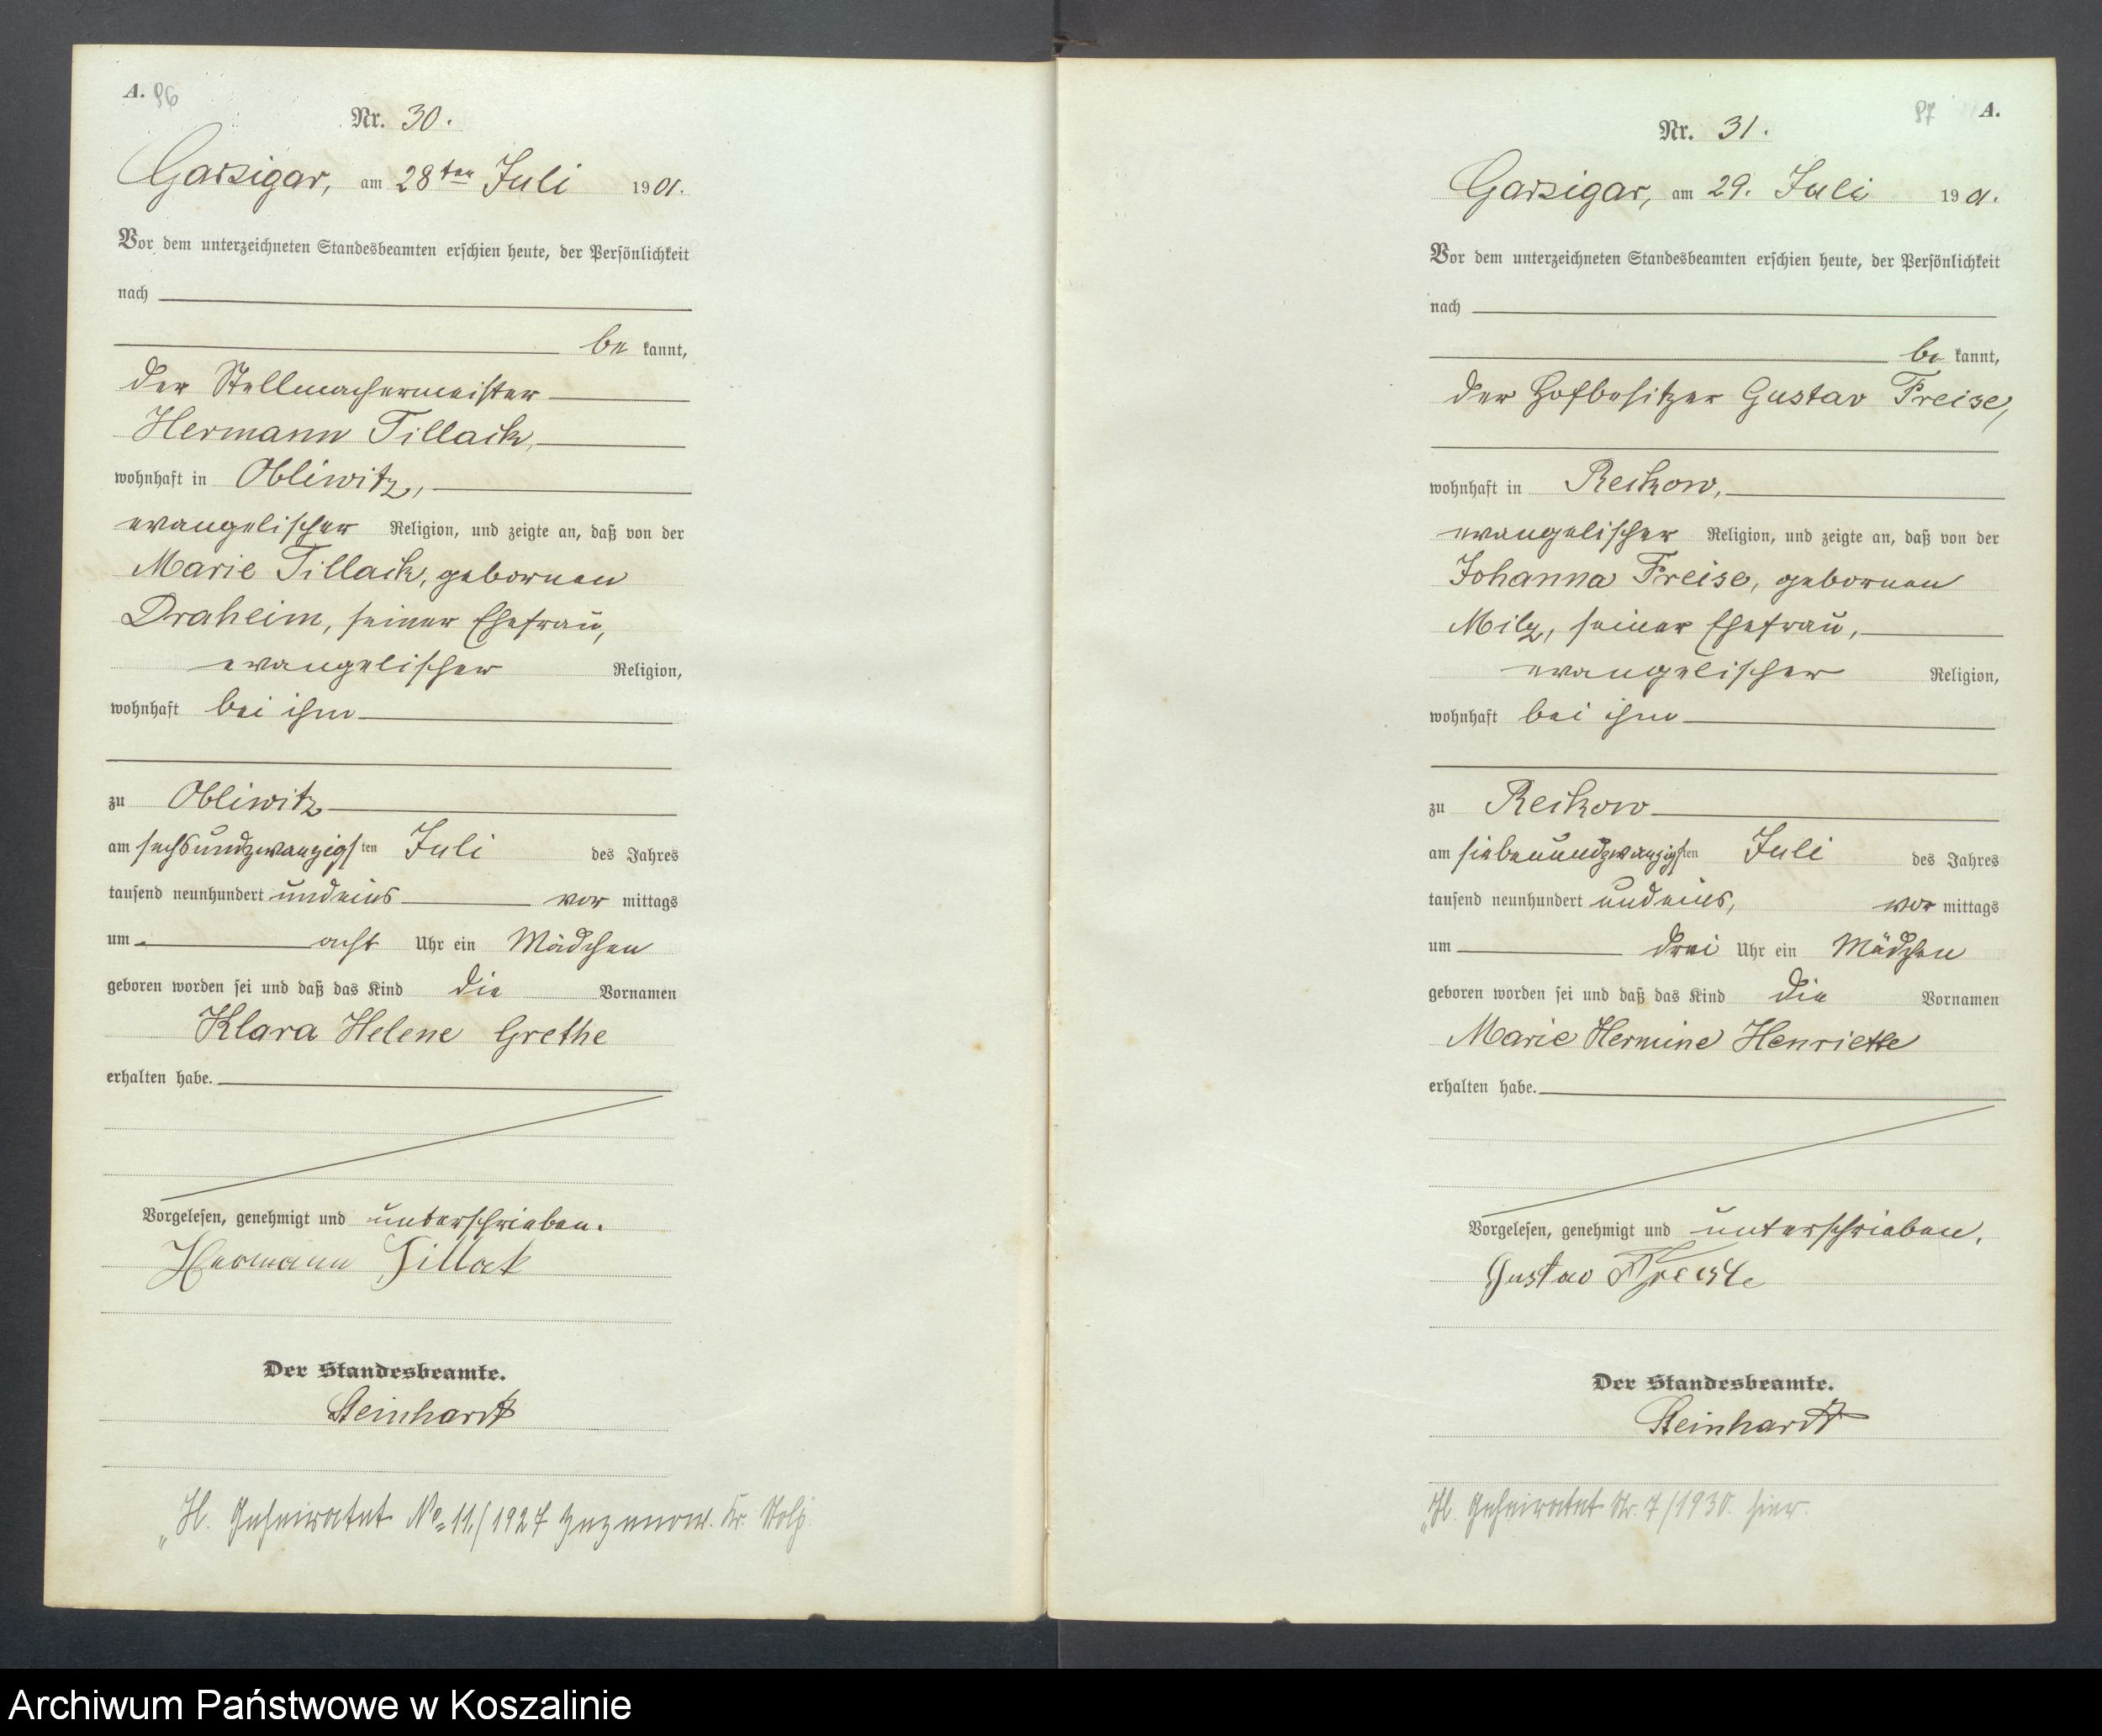 A. 96
Nr. 30.
Garzigar, am 28ten Juli 1901.
Vor dem unterzeichneten Standesbeamten erschien heute, der Persönlichkeit
nach
be kannt,
der Stellmachermeister
Hermann Tillack,
wohnhaft in Obliwitz,
evangelischer Religion, und zeigte an, daß von der
Marie Tillack, geborenen
Draheim, seiner Ehefrau,
evangelischer Religion,
wohnhaft bei ihm
zu Obliwitz
am sechsundzwanzigsten Juli des Jahres
tausend neunhundert undeins vor mittags
um acht Uhr ein Mädchen
geboren worden sei und daß das Kind die Vornamen
Klara Helene Grethe
erhalten habe.
Vorgelesen, genehmigt und unterschrieben.
Hermann Tillack
Der Standesbeamte.
Steinhardt
„H. Geheiratet No 11/1927 Zezenow. Kr. Stolp.
97 A.
Nr. 31.
Garzigar, am 29. Juli 1901.
Vor dem unterzeichneten Standesbeamten erschien heute, der Persönlichkeit
nach
be kannt,
der Hofbesitzer Gustav Freise,
wohnhaft in Reckow,
evangelischer Religion, und zeigte an, daß von der
Johanna Freise, geborenen
Milz, seiner Ehefrau,
evangelischer Religion,
wohnhaft bei ihm
zu Reckow
am siebenundzwanzigsten Juli des Jahres
tausend neunhundert undeins, vor mittags
um drei Uhr ein Mädchen
geboren worden sei und daß das Kind die Vornamen
Marie Hermine Henriette
erhalten habe.
Vorgelesen, genehmigt und unterschrieben.
Gustav Freise
Der Standesbeamte.
Steinhardt
„H. Geheiratet Nr. 7/1930. hier.
Archiwum Państwowe w Koszalinie